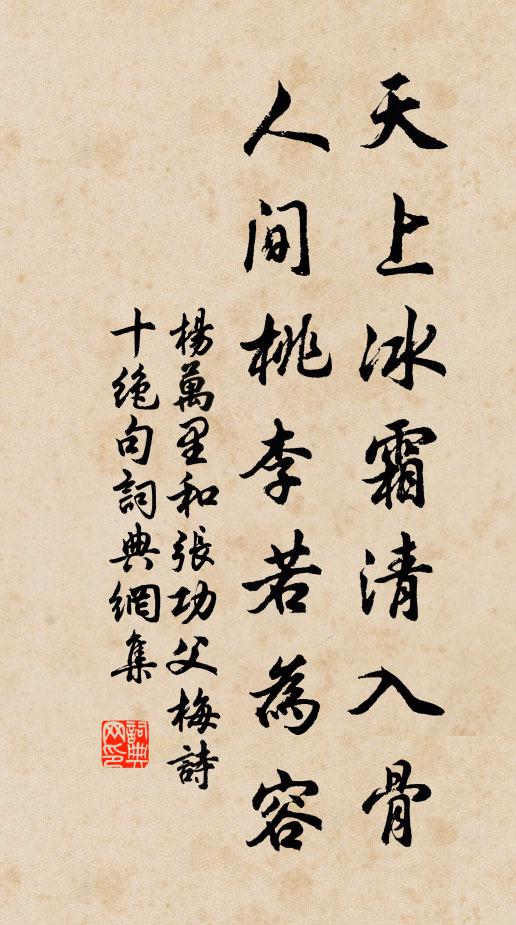 天上冰霜清入骨
人间桃李若為容
楊萬里和張功父梅詩
十絶句詞典網集
詞典网印